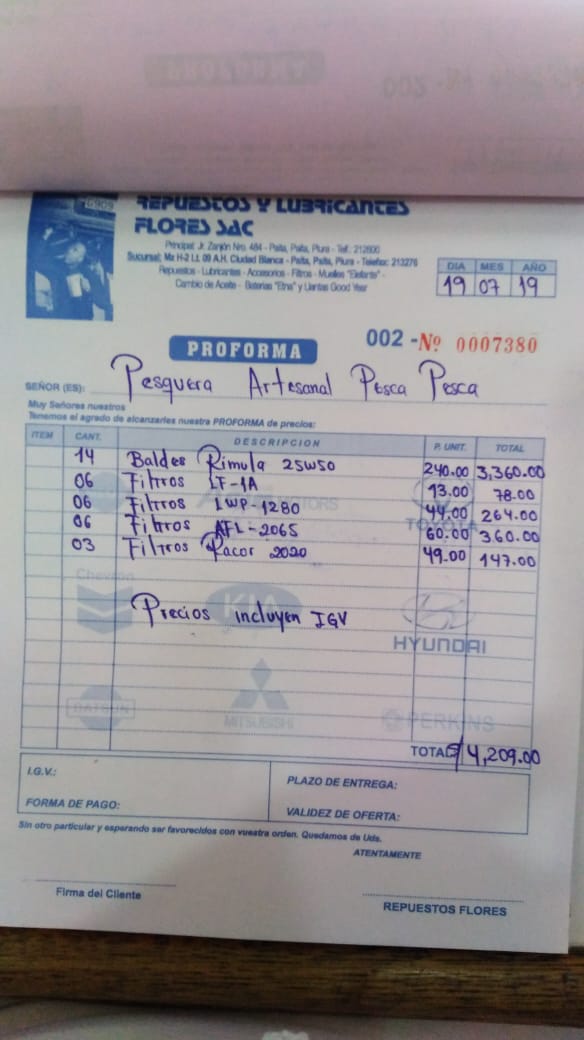 PROFORMA
002 - Nº
6909
REPUESTOS Y LUBRICANTES
FLORES SAC
Principal: Jr. Zanjón Nro. 484 - Paita, Paita, Piura - Telf.: 212600
Sucursal: Mz H-2 Lt. 09 A.H. Ciudad Blanca - Paita, Paita, Piura - Telefax: 213276
Repuestos - Lubricantes - Accesorios - Filtros - Muelles "Elefante" -
Cambio de Aceite - Baterías "Etna" y Llantas Good Year
DIA MES AÑO
19 07 19
PROFORMA
002 - Nº 0007380
SEÑOR (ES): Pesquera Artesanal Pesca Pesca
Muy Señores nuestros
Tenemos el agrado de alcanzarles nuestra PROFORMA de precios:
ITEM CANT. DESCRIPCION P. UNIT. TOTAL
14 Baldes Rimula 25W50 240.00 3,360.00
06 Filtros LF-1A 13.00 78.00
06 Filtros LWP-1280 44.00 264.00
06 Filtros AFL-2065 60.00 360.00
03 Filtros Racor 2020 49.00 147.00
MOTORS
TOYOTA
Chevron
KIA
HYUNDAI
Precios incluyen IGV
DATSUN
MITSUBISHI
PERKINS
TOTAL S/ 4,209.00
I.G.V.:
PLAZO DE ENTREGA:
FORMA DE PAGO:
VALIDEZ DE OFERTA:
Sin otro particular y esperando ser favorecidos con vuestra orden. Quedamos de Uds.
ATENTAMENTE
Firma del Cliente
REPUESTOS FLORES